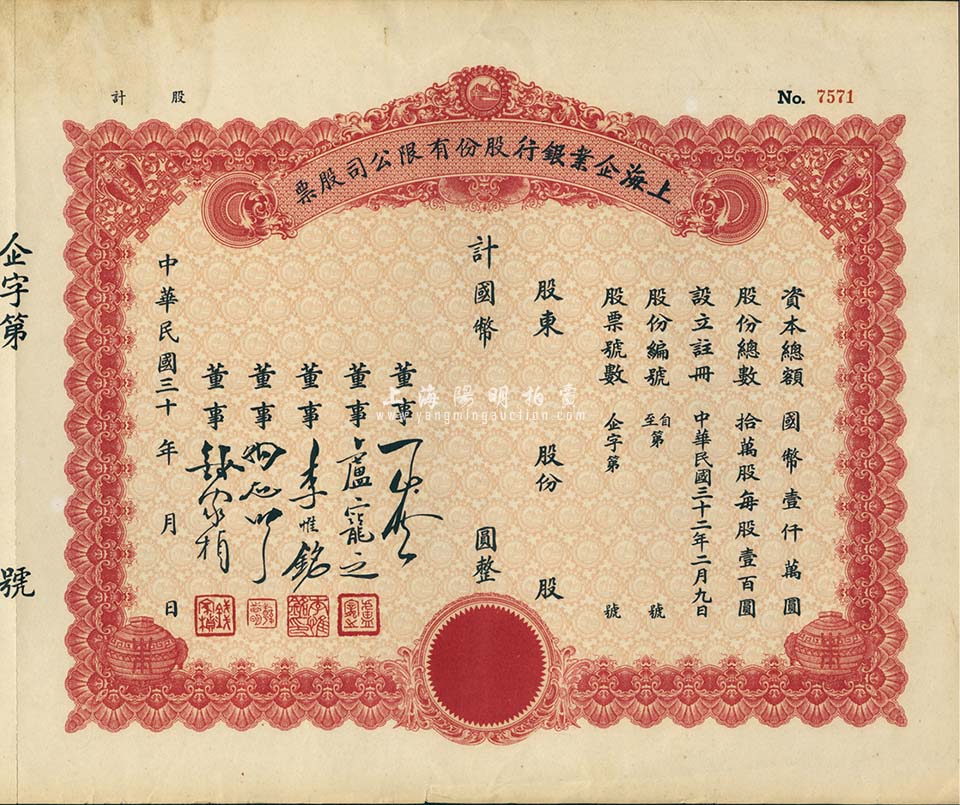 計　股
No. 7571
上海企業銀行股份有限公司股票
資本總額　國幣壹仟萬圓
股份總數　拾萬股每股壹百圓
設立註冊　中華民國三十二年二月九日
股份編號　自至第　號
股票號數　企字第　號
股東　股份　股
計國幣　圓整
董事
董事　盧寵之
董事　李惟銘
董事
董事
中華民國三十　年　月　日
企字第　號
上海陽明拍賣
www.yangmingauction.com